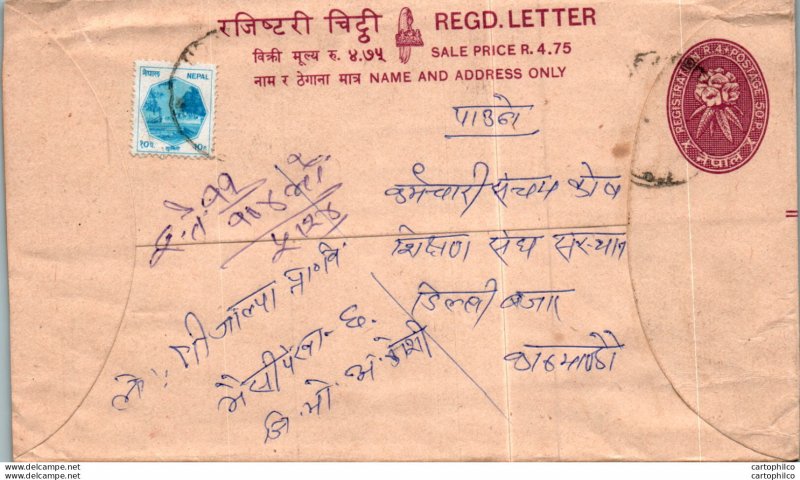 रजिष्टरी चिट्ठी REGD. LETTER
विक्री मूल्य रु. ४.७५ SALE PRICE R. 4.75
नाम र ठेगाना मात्र NAME AND ADDRESS ONLY
नेपाल NEPAL
१०प. 10p.
REGISTRATION R.4+POSTAGE 50P.
नेपाल
पाउने
कर्मचारी संचय कोष
शिक्षण संघ संस्थान
डिल्ली बजार
काठमाण्डौ
श्री जाल्पा मा.वि.
भैसीपंखा - ८.
जि.
www.delcampe.net
cartophilco
cartophilco